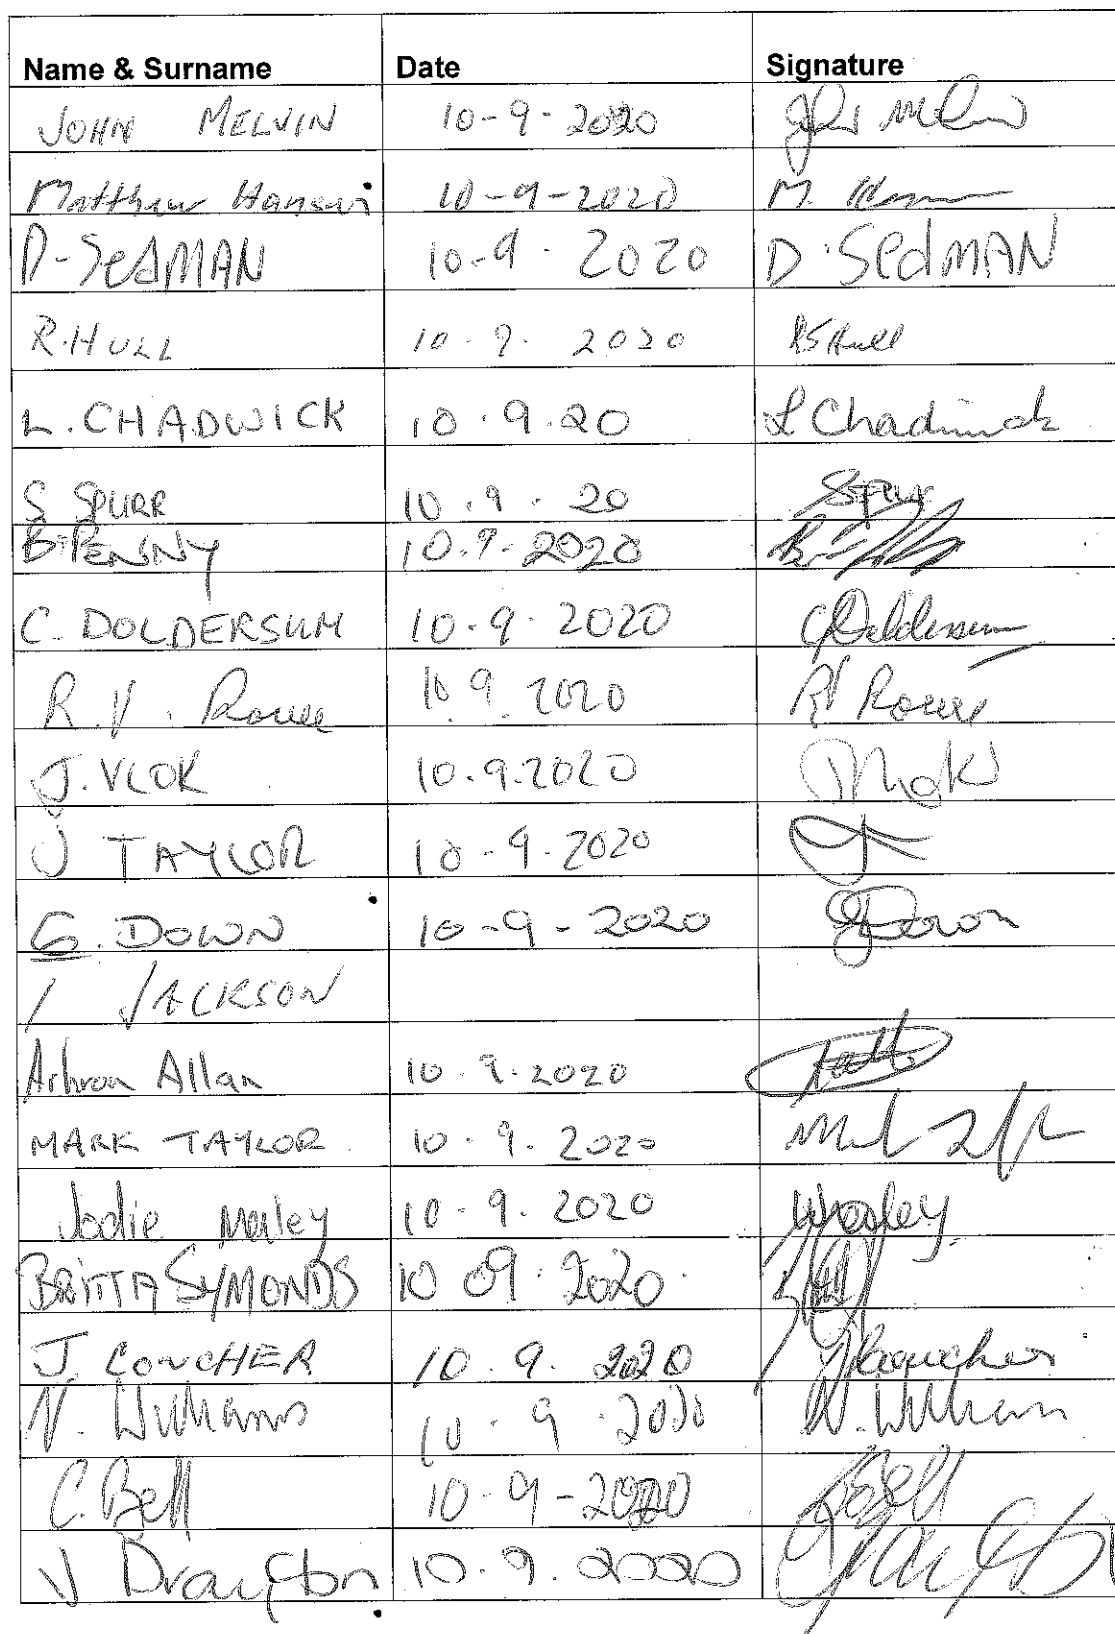 Name & Surname Date Signature
JOHN MELVIN 10-9-2020
Matthew 10-9-2020 M.
D-SedMAN 10.9.2020 D.SedMAN
R.HULL 10.9.2020 Hull
L.CHADWICK 10.9.20 L Chadwick
S SPURR 10.9.20 Spurr
B.PENNY 10.9.2020
C. DOLDERSUM 10.9.2020 C Doldersum
R.V. Rowe 10 9 2020 RV Rowe
J.VLOK 10.9.2020
J TAYLOR 10-9-2020
G. DOWN 10-9-2020 G Down
JACKSON
Allan 10.9.2020
MARK TAYLOR 10.9.2020
Jodie 10.9.2020
BRITTA SYMONDS 10 09.2020
J. COUCHER 10.9.2020 J Coucher
N. Williams 10.9.2020 N. William
C. Bell 10-9-2020 Bell
V Drayton 10.9.2020 Drayton